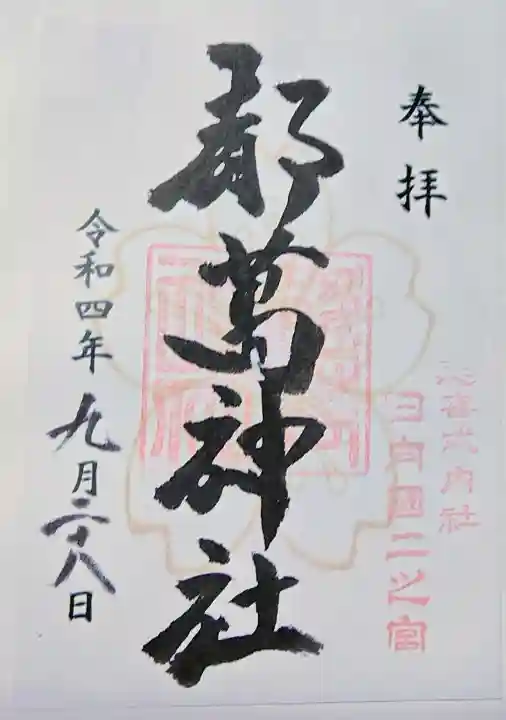 奉拝
延喜式内社
日向國二之宮
都萬神社
令和四年九月二十八日